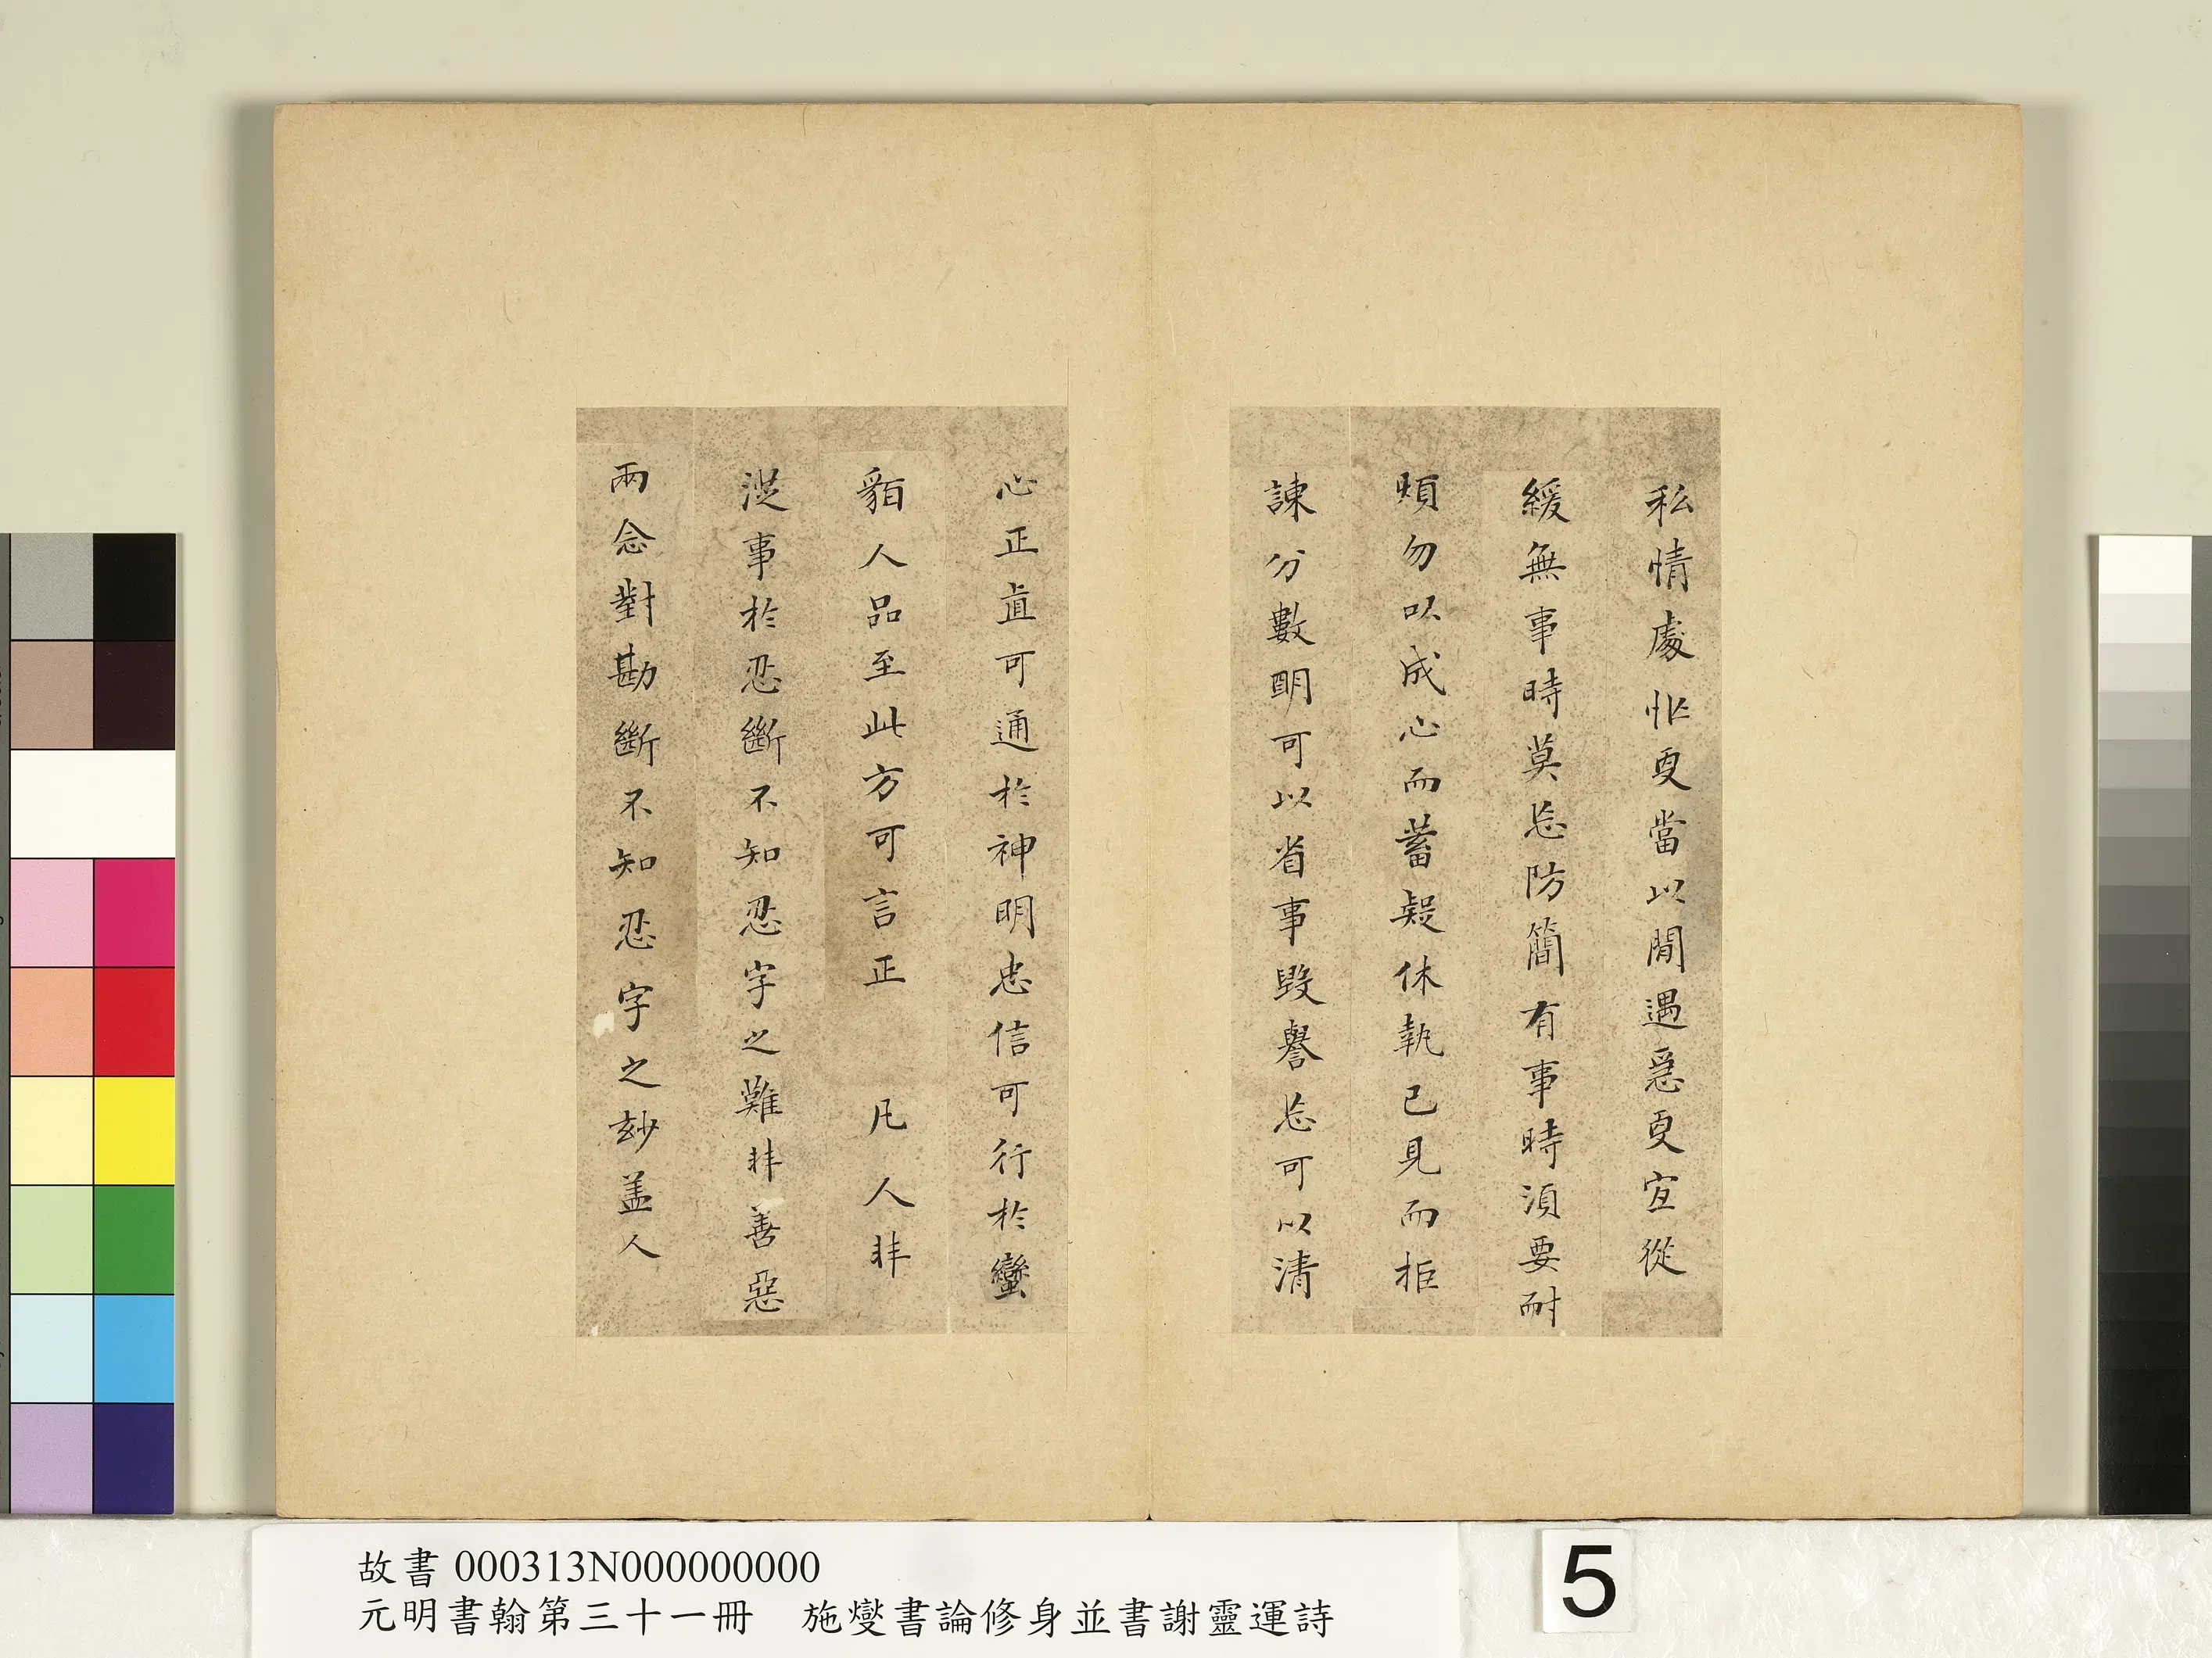 私情處忙更當以閒遇急更宜從
緩無事時莫忘防簡有事時須要耐
煩勿以成心而蓄疑休執己見而拒
諫分數明可以省事毀譽忘可以清
心正直可通於神明忠信可行於蠻
貊人品至此方可言正 凡人非
從事於忍斷不知忍字之難非善惡
兩念對勘斷不知忍字之妙蓋人
故書 000313N000000000
元明書翰第三十一冊 施燮書論修身並書謝靈運詩
5